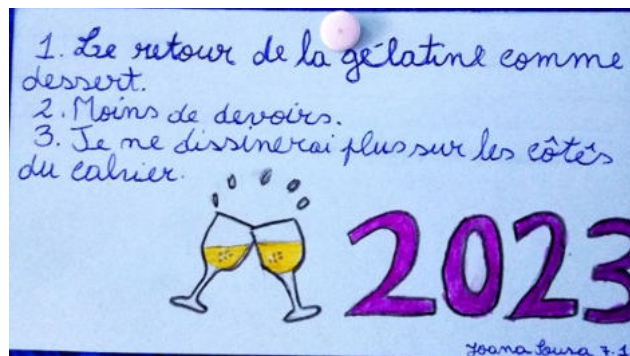 1. Le retour de la gélatine comme
dessert.
2. Moins de devoirs.
3. Je ne dissinerai plus sur les côtés
du cahier.
2023
Joana Sousa 7.1